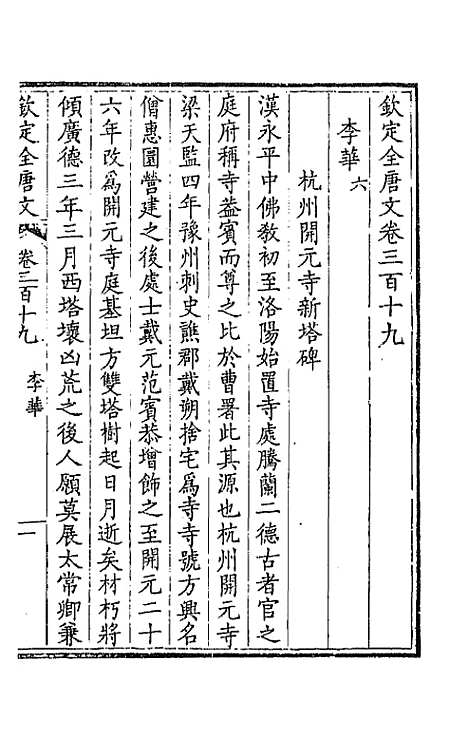 欽定全唐文卷三百十九
李華六
杭州開元寺新塔碑
漢永平中佛敎初至洛陽始置寺處騰蘭二德古者官之
庭府稱寺葢賓而尊之比於曹署此其源也杭州開元寺
梁天監四年豫州刺史譙郡戴朔捨宅爲寺寺號方興名
僧惠圓營建之後處士戴元范賓恭增飾之至開元二十
六年改爲開元寺庭基坦方雙塔樹起日月逝矣材朽將
傾廣德三年三月西塔壞凶荒之後人願莫展太常卿兼
欽定全唐文 卷三百十九 李華 一